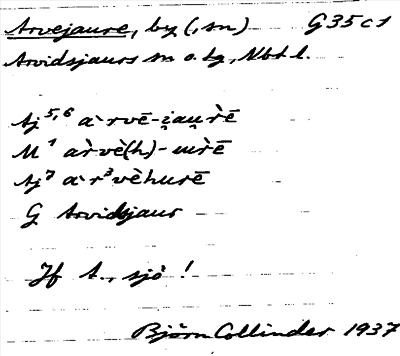 Arvejaure, by (, sn) G35c1
Arvidsjaurs sn o. tg, Nbt l.
Aj 5,6 a`rvē-i̯au̯r̀ē
M 1 àrvè(h)-urē
Aj 7 a`r³vèhurē
G Arvidsjaur
Jf A., sjö!
Björn Collinder 1937